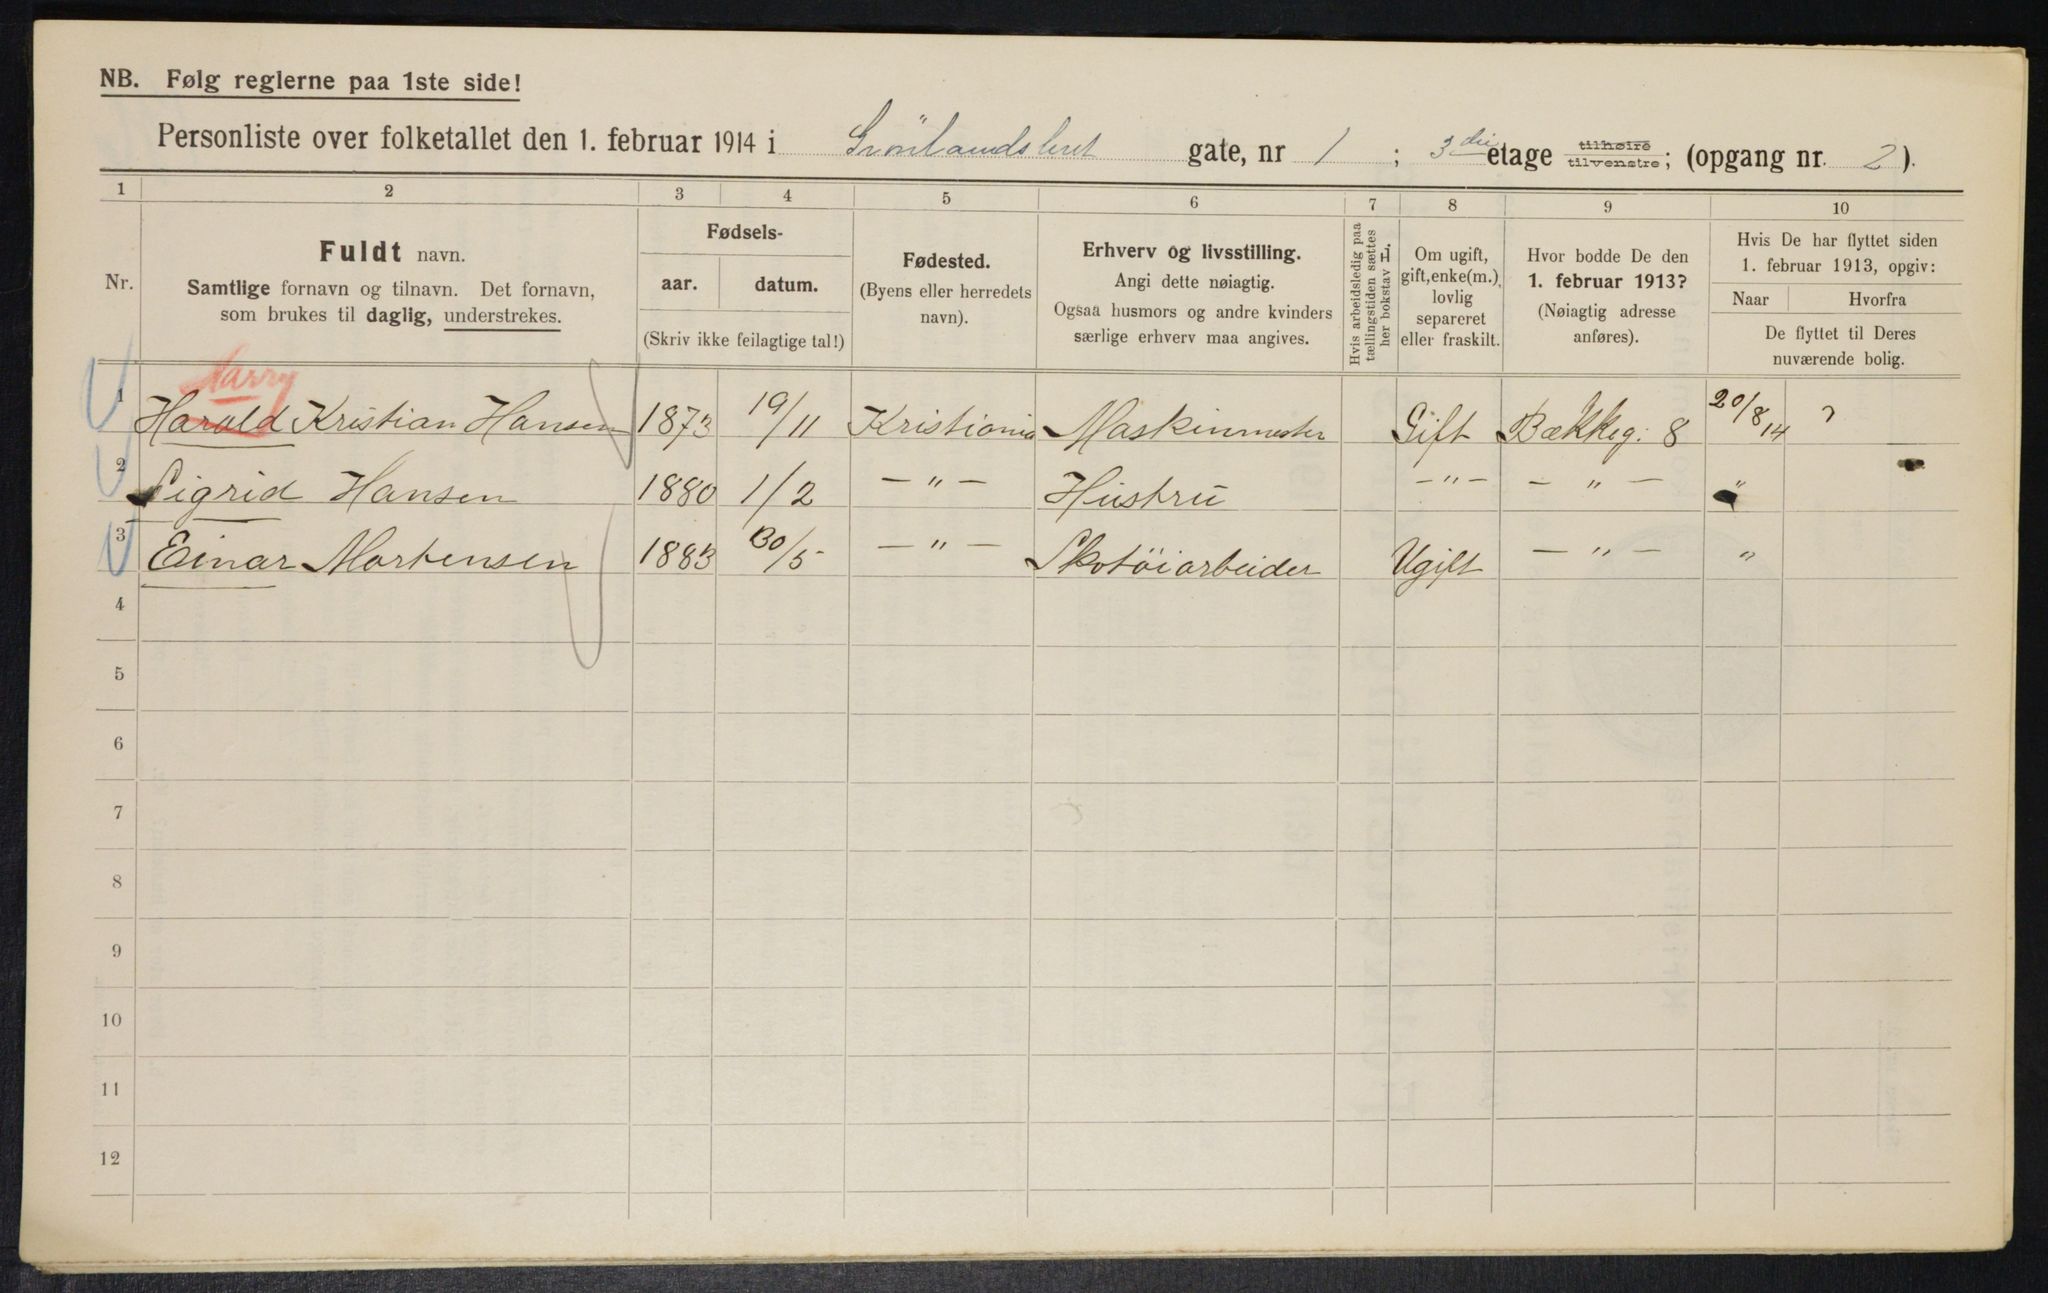 NB. Følg reglerne paa 1ste side!
Personliste over folketallet den 1. februar 1914 i Grönlandsleret gate, nr 1 ; 3die etage tilhøire tilvenstre; (opgang nr. 2).
1 2 3 4 5 6 7 8 9 10
Nr.
Fuldt navn.
Samtlige fornavn og tilnavn. Det fornavn,
som brukes til daglig, understrekes.
Fødsels-
aar. datum.
(Skriv ikke feilagtige tal!)
Fødested.
(Byens eller herredets
navn).
Erhverv og livsstilling.
Angi dette nøiagtig.
Ogsaa husmors og andre kvinders
særlige erhverv maa angives.
Hvis arbeidsledig paa
tællingstiden sættes
her bokstav H.
Om ugift,
gift, enke(m.),
lovlig
separeret
eller fraskilt.
Hvor bodde De den
1. februar 1913?
(Nøiagtig adresse
anføres).
Hvis De har flyttet siden
1. februar 1913, opgiv:
Naar Hvorfra
De flyttet til Deres
nuværende bolig.
Harry
1 Harald Kristian Hansen 1873 19/11 Kristiania Maskinmester Gift Bækkeg: 8 20/8 14 ?
2 Sigrid Hansen 1880 1/2 – " – Hustru – " – – " – "
3 Einar Mortensen 1883 30/5 – " – Skotöiarbeider Ugift – " – "
4
5
6
7
8
9
10
11
12